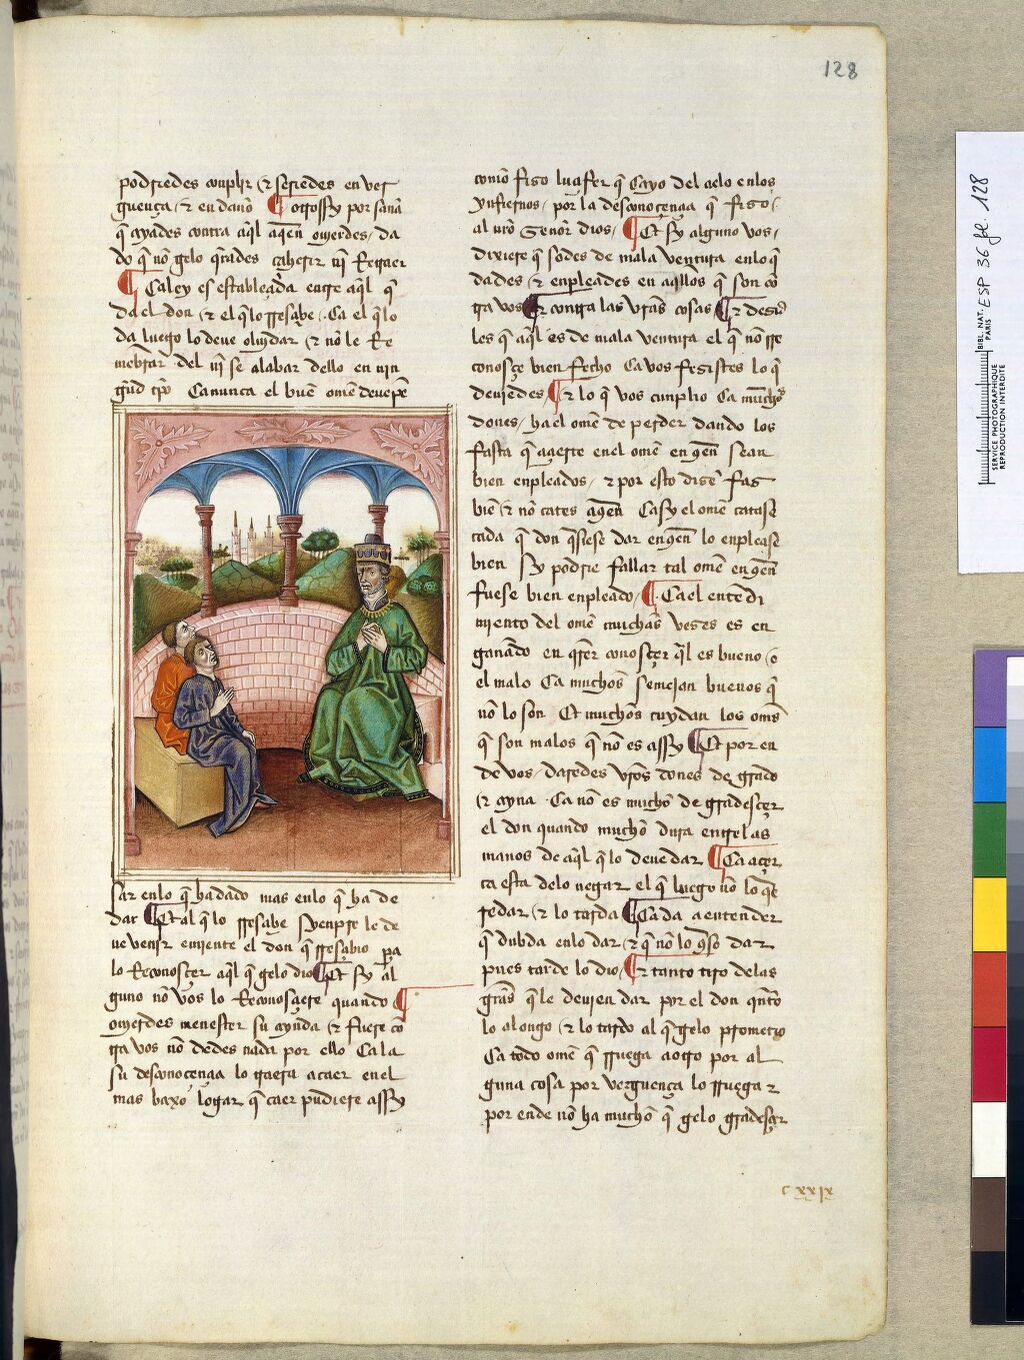 128
podriedes conplir & seriedes en ver
guença & en dano ¶ otrossy por saña
q̃ ayades contra aq̃l aqen
do q̃ nõ gelo q̃rades
¶ Ca ley es establesçida entre aq̃l q̃
da el don & el q̃ lo rresçibe. Ca el q̃ lo
da luego lo deue oluidar & nõ le Re
menbrar del nĩ se alabar dello en nin
gũd tpõ Ca nunca el buẽ omẽ deue pẽ
sar en lo q̃ ha dado mas en lo q̃ ha de
dar ¶ Et al q̃ lo rresçibe syenpre le de
ue venir emiente el don q̃ rresçibio pa
lo Reconosçer aq̃l q̃ gelo dio ¶ Et sy al
guno nõ vos lo Reconosçiere quando ¶
ouierdes menester su ayuda & fuere cõ
tra vos nõ dedes nada por ello Ca la
su desconosçençia lo traera a caer en el
mas baxo logar q̃ caer pudiere assy
como fizo luçifer q̃ Cayo del çielo en los
ynfiernos, por la desconosçençia q̃ fizo
al urõ Señor dios, ¶ Et sy alguno vos
dixiere q̃ sodes de mala ventura en lo q̃
dades & enpleades en aq̃llos q̃ son cõ
tra vos ¶ Et contra las vrãs cosas ¶ Et dezid
les q̃ aq̃l es de mala ventura el q̃ nõ rre
conosçe bien fecho Ca vos fezistes lo q̃
deuiedes ¶ & lo q̃ vos cunplio Ca muchos
dones, ha el omẽ de perder dando los
fasta q̃ açierte en el omẽ en q̃en sean
bien enpleados, & por esto dizẽ faz
biẽ & nõ cates aq̃en Ca sy el omẽ catase
cada q̃ don q̃siese dar en q̃en lo enplease
bien Sy podrie fallar tal omẽ en q̃en
fuese bien enpleado, ¶ Ca el entẽdi
miento del omẽ muchas vezes es en
gañado en q̃rer conosçer q̃l es bueno o
el malo Ca muchos semejan buenos q̃
nõ lo son Et muchos cuydan los oms̃
q̃ son malos q̃ nõ es assy ¶ Et por en
de vos, daredes vrõs dones de grãdo
& ayna. Ca nõ es mucho de gradesçer
el don quando mucho dura entre las
manos de aq̃l q̃ lo deue dar ¶ Ca açer
ca esta de lo negar el q̃ luego nõ lo q̃re
dar & lo tarda ¶ Ca da a entender
q̃ dubda en lo dar & q̃ nõ lo q̃so dar
pues tarde lo dio, ¶ Et tanto tiro de las
grãs q̃ le deuien dar por el don q̃nto
lo alongo & lo tardo al q̃ gelo prometio
Ca todo omẽ q̃ rruega a otro por al
guna cosa por verguença lo rruega &
por ende nõ ha mucho q̃ gelo gradesçer
cxxix
BIBL. NAT. PARIS
ESP 36 fol. 128
SERVICE PHOTOGRAPHIQUE
REPRODUCTION INTERDITE